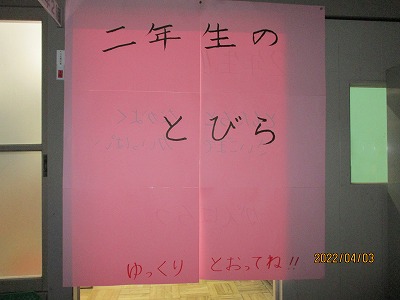 二年生の
とびら
ゆっくり とおってね!!
2022/04/03